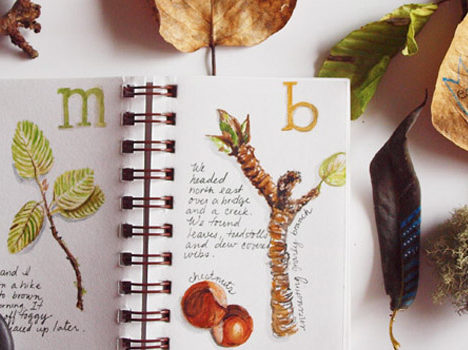 m
and I
on a hike
to brown
morning. It
off foggy
cleared up later.
b
We
headed
north east
over a bridge
and a creek.
We found
leaves, toadstools
and dew covered
webs.
chestnuts
branch